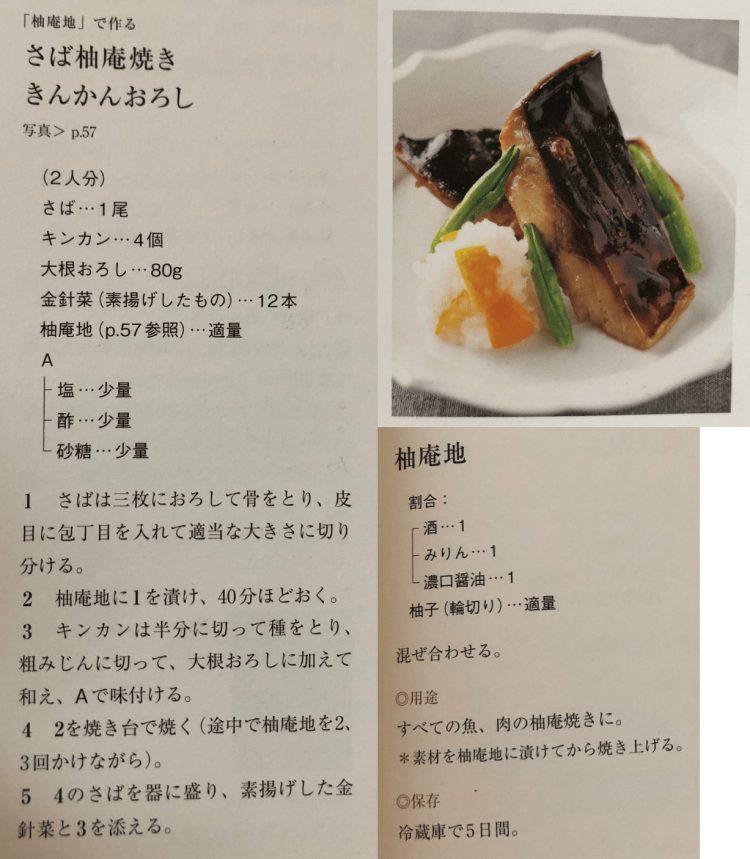 「柚庵地」で作る
さば柚庵焼き
きんかんおろし
写真＞ p.57
（2人分）
さば…1尾
キンカン…4個
大根おろし…80g
金針菜（素揚げしたもの）…12本
柚庵地（p.57参照）…適量
A
塩…少量
酢…少量
砂糖…少量
1　さばは三枚におろして骨をとり、皮
目に包丁目を入れて適当な大きさに切り
分ける。
2　柚庵地に1を漬け、40分ほどおく。
3　キンカンは半分に切って種をとり、
粗みじんに切って、大根おろしに加えて
和え、Aで味付ける。
4　2を焼き台で焼く（途中で柚庵地を2、
3回かけながら）。
5　4のさばを器に盛り、素揚げした金
針菜と3を添える。
柚庵地
割合：
酒…1
みりん…1
濃口醤油…1
柚子（輪切り）…適量
混ぜ合わせる。
◎用途
すべての魚、肉の柚庵焼きに。
＊素材を柚庵地に漬けてから焼き上げる。
◎保存
冷蔵庫で5日間。